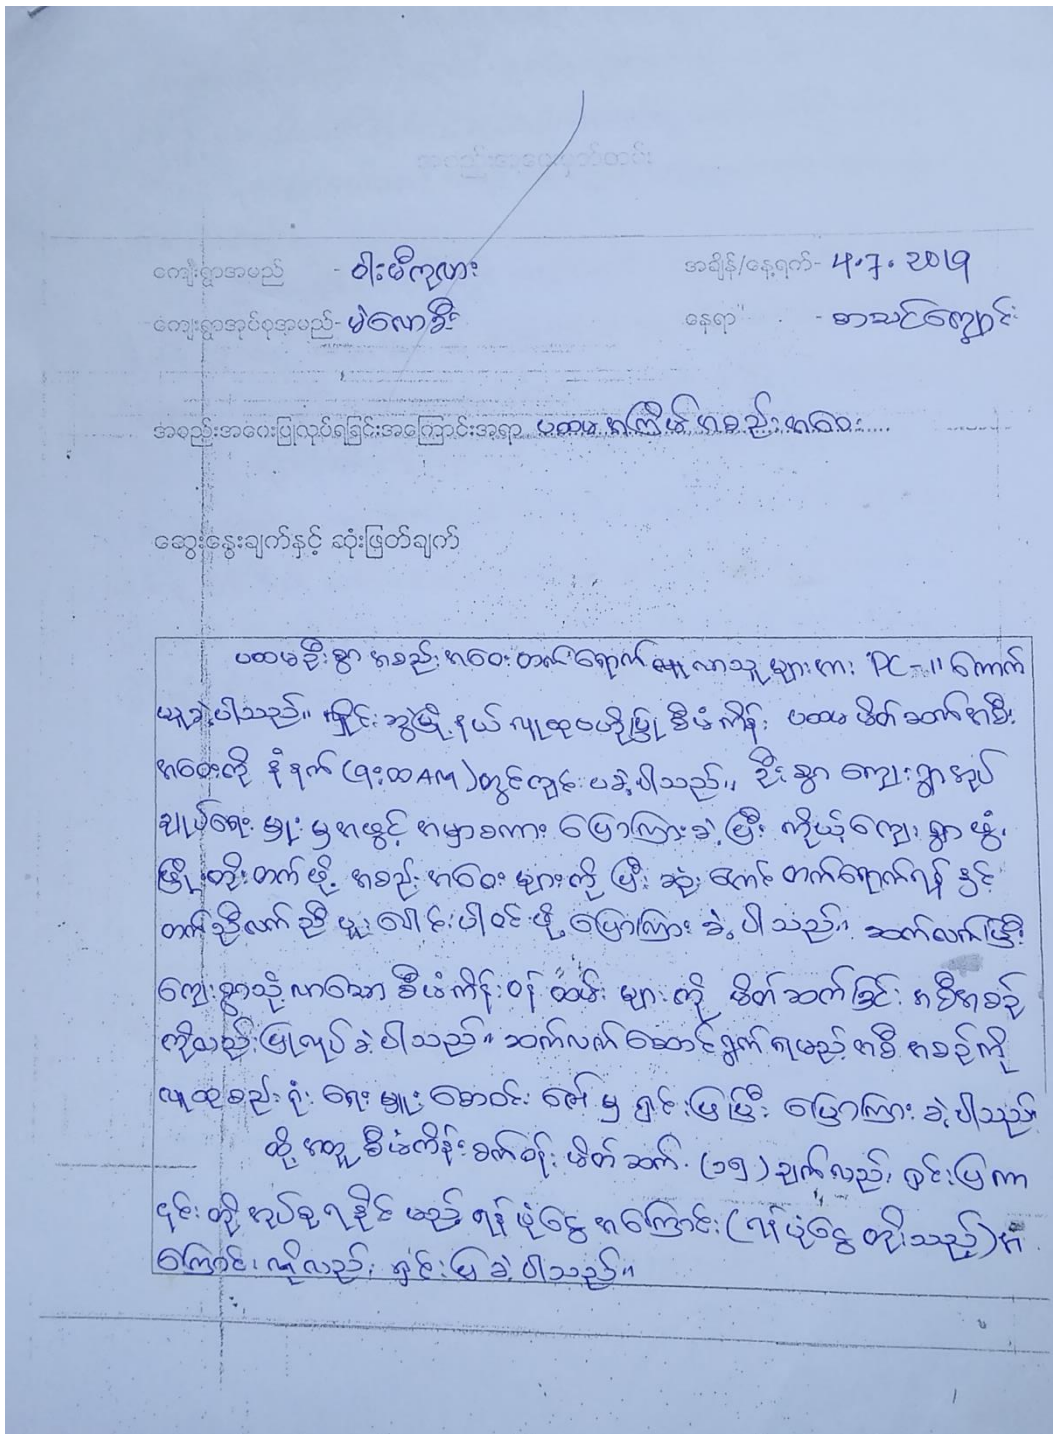 အစည်းအဝေးမှတ်တမ်း
ကျေးရွာအမည် - ဝါးမီကုလား အချိန်/နေ့ရက်- 4.7.2019
ကျေးရွာအုပ်စုအမည်- မဲလောခီး နေရာ - စာသင်ကျောင်း
အစည်းအဝေးပြုလုပ်ရခြင်းအကြောင်းအရာ ပထမအကြိမ်အစည်းအဝေး
ဆွေးနွေးချက်နှင့် ဆုံးဖြတ်ချက်
ပထမဦးစွာ အစည်းအဝေးတက်ရောက် လာသူများအား PC-11 ကောက်
ယူခဲ့ပါသည်။ လှိုင်းဘွဲမြို့နယ် လူထုဗဟိုပြုစီမံကိန်း ပထမမိတ်ဆက်အစည်း
အဝေးကို နံနက် (၇းထAM) တွင်ကျင်းပခဲ့ပါသည်။ ဦးစွာ ကျေးရွာအုပ်
ချုပ်ရေးမှုးမှ အဖွင့် အမှာစကား ပြောကြားခဲ့ပြီး ကိုယ့်ကျေးရွာ ဖွံ့
ဖြိုးတိုးတက်ဖို့ အစည်းအဝေးများကို ပြီးဆုံးအောင် တက်ရောက်ရန် နှင့်
တက်ညီလက်ညီ ပူးပေါင်းပါဝင်ဖို့ ပြောကြားခဲ့ပါသည်။ ဆက်လက်ပြီး
ကျေးရွာသို့လာသော စီမံကိန်းဝန်ထမ်းများကို မိတ်ဆက်ခြင်း အစီအစဉ်
ကိုလည်းပြုလုပ်ခဲ့ပါသည်။ ဆက်လက်ဆောင်ရွက်ရမည့်အစီအစဉ်ကို
လူထုစည်းရုံးရေးမှူး စောဝင်းဇော်မှ ရှင်းပြပြီး ပြောကြားခဲ့ပါသည်
ထို့အတူ စီမံကိန်းစက်ဝန်း မိတ်ဆက် (၁၅) ချက်လည်း ရှင်းပြကာ
၎င်းတို့အုပ်စုရနိုင်မည့် ရန်ပုံငွေအကြောင်း (ရန်ပုံငွေတိုးသည့်) အ
ကြောင်းကိုလည်း ရှင်းပြခဲ့ပါသည်။